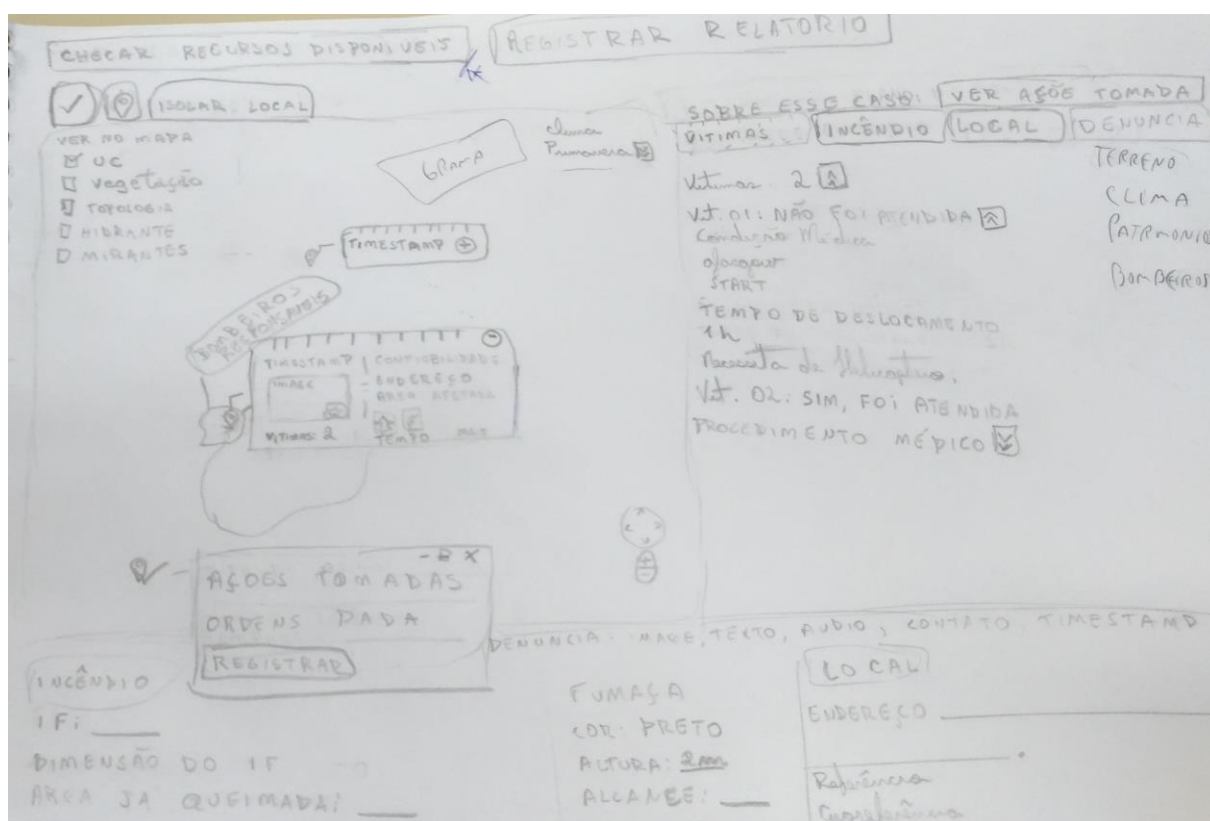 CHECAR RECURSOS DISPONIVEIS
REGISTRAR RELATORIO
ISOLAR LOCAL
VER NO MAPA
UC
Vegetação
TOPOLOGIA
HIDRANTE
MIRANTES
clima
Primavera
TIMESTAMP +
BOMBEIROS
RESPONSAVEIS
TIMESTAMP
IMAGE
VITIMAS: 2
CONFIABILIDADE
ENDEREÇO
AREA AFETADA
TEMPO
SOBRE ESSE CASO: VER AÇÕE TOMADA
VITIMAS INCÊNDIO LOCAL DENUNCIA
TERRENO
CLIMA
PATRMONIO
BOMBEIROS
Vitimas: 2
Vit. 01: NÃO FOI ATENDIDA
Condição Médica
START
TEMPO DE DESLOCAMENTO
1h
Necessita de Helicoptero.
Vit. 02: SIM, FOI ATENDIDA
PROCEDIMENTO MÉDICO
+
-
- X
AÇOES TOMADAS
ORDENS DADA
REGISTRAR
DENUNCIA: IMAGE, TEXTO, AUDIO, CONTATO, TIMESTAMP
INCÊNDIO
IF: ____
DIMENSÃO DO IF
AREA JA QUEIMADA: ____
FUMAÇA
COR: PRETO
ALTURA: 2m
ALCANCE: ____
LOCAL
ENDEREÇO ____
____.
Referência
Georeferência